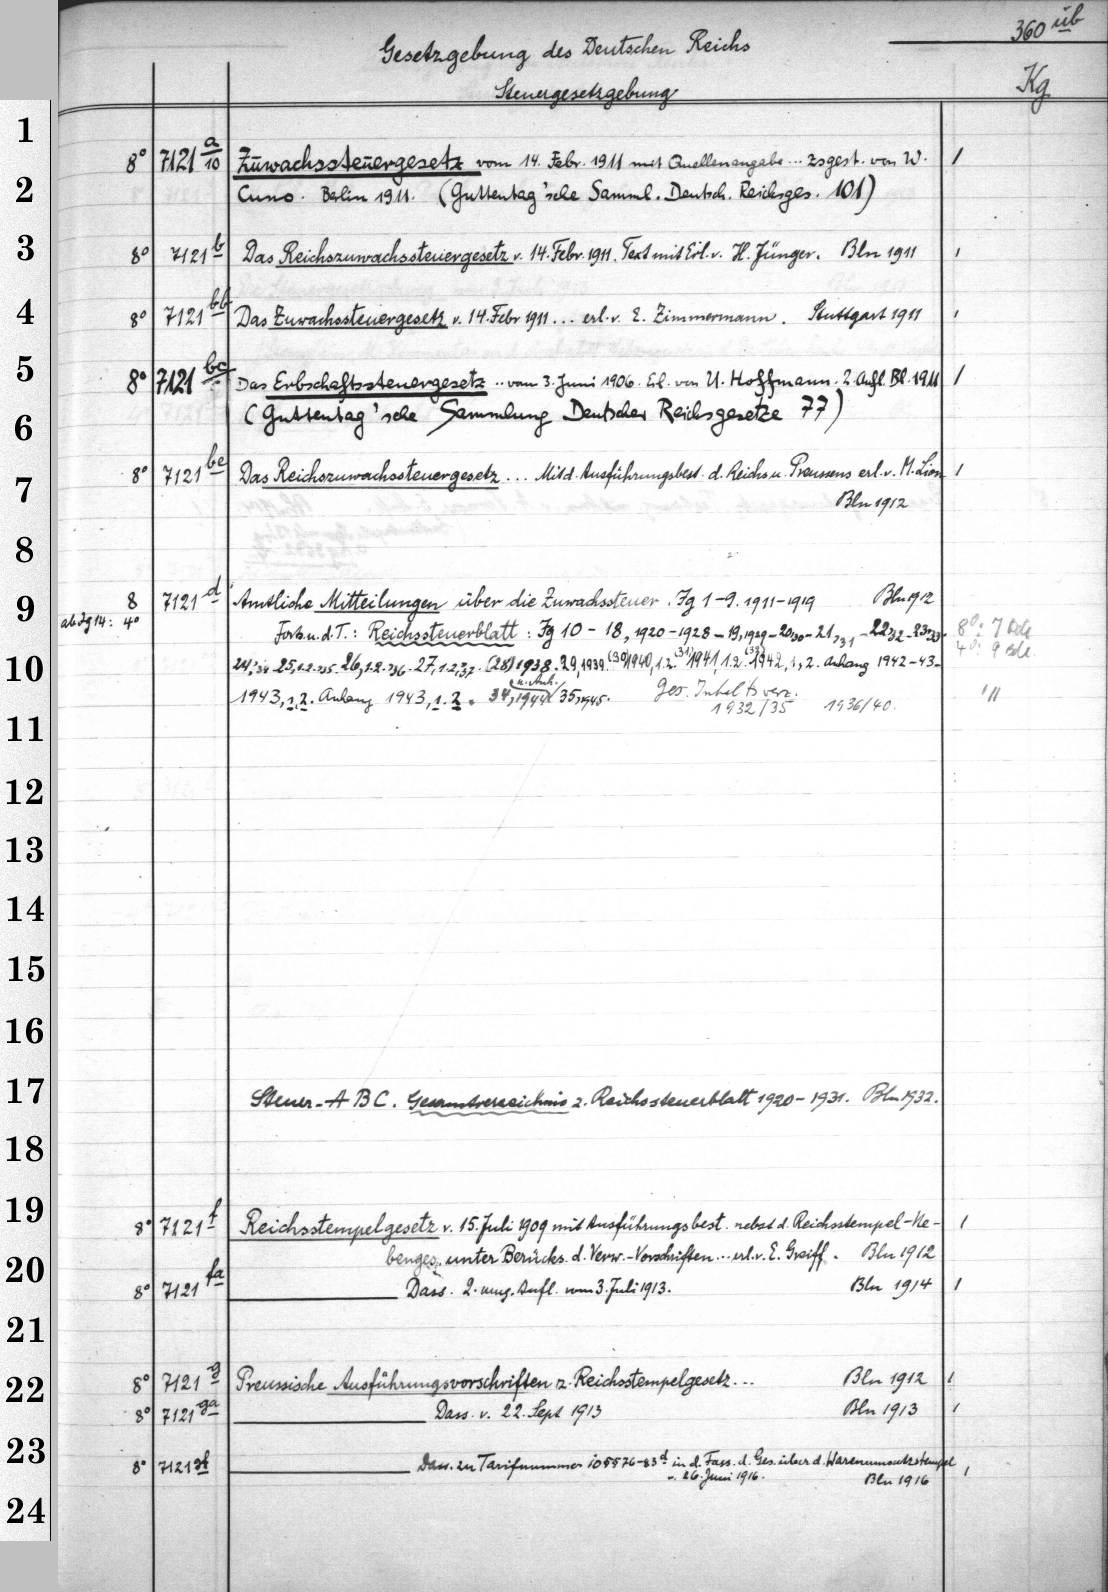 360 üb
Gesetzgebung des Deutschen Reichs
Steuergesetzgebung
Kg
1
8° 7121 a/10 Zuwachssteuergesetz vom 14. Febr. 1911 mit Quellenangabe ... zsgest. von W. 1
2
Cuno. Berlin 1911. (Guttentag'sche Samml. Deutsch. Reichsges. 101)
3
8° 7121 b Das Reichszuwachssteuergesetz v. 14. Febr. 1911. Text mit Erl. v. H. Jünger. Bln 1911 1
4
8° 7121 bb Das Zuwachssteuergesetz v. 14. Febr 1911 ... erl. v. E. Zimmermann. Stuttgart 1911 1
5
8° 7121 bc Das Erbschaftssteuergesetz .. vom 3. Juni 1906. Erl. von U. Hoffmann. 2. Aufl. Bl. 1911 1
6
(Guttentag'sche Sammlung Deutscher Reichsgesetze 77)
8° 7121 be Das Reichszuwachssteuergesetz ... Mit d. Ausführungsbest. d. Reichs u. Preussens erl. v. M. Lion 1
7
Bln 1912
8
9
8 7121 d Amtliche Mitteilungen über die Zuwachssteuer. Jg 1-9. 1911-1919 Bln 1912
ab Jg 14: 4° Forts. u. d. T.: Reichssteuerblatt: Jg 10-18, 1920-1928-19, 1929-20,30-21,31-22,32-23,33- 8°: 7 Bde
4°: 9 Bde
10
24,34 25,1.2.35. 26,1.2.36-27,1.2,37. (28) 1938. 29, 1939. (30) 1940, 1.2. (31) 1941 1.2. (32) 1942, 1, 2. Anhang 1942-43-
1943, 1, 2. Anhang 1943, 1. 2. 34, 1944 u. Anh. 35, 1945. Ges. Inhaltsverz. 1932/35 1936/40. "
11
12
13
14
15
16
17
Steuer-ABC. Gesamtverzeichnis z. Reichssteuerblatt 1920-1931. Bln 1932.
18
19
8° 7121 f Reichsstempelgesetz v. 15. Juli 1909 mit Ausführungsbest. nebst d. Reichsstempel-Ne- 1
benges. unter Berücks. d. Verw.-Vorschriften ... erl. v. E. Greiff. Bln 1912
20
8° 7121 fa Dass. 2. umg. Aufl. vom 3. Juli 1913. Bln 1914 1
21
22
8° 7121 g Preussische Ausführungsvorschriften z. Reichsstempelgesetz ... Bln 1912 1
8° 7121 ga Dass. v. 22. Sept 1913 Bln 1913 1
23
8° 7121 Dass. zu Tarifnummer 10 §§ 76-83 d in d. Fass. d. Ges. über d. Warenumsatzstempel 1
v. 26. Juni 1916. Bln 1916
24